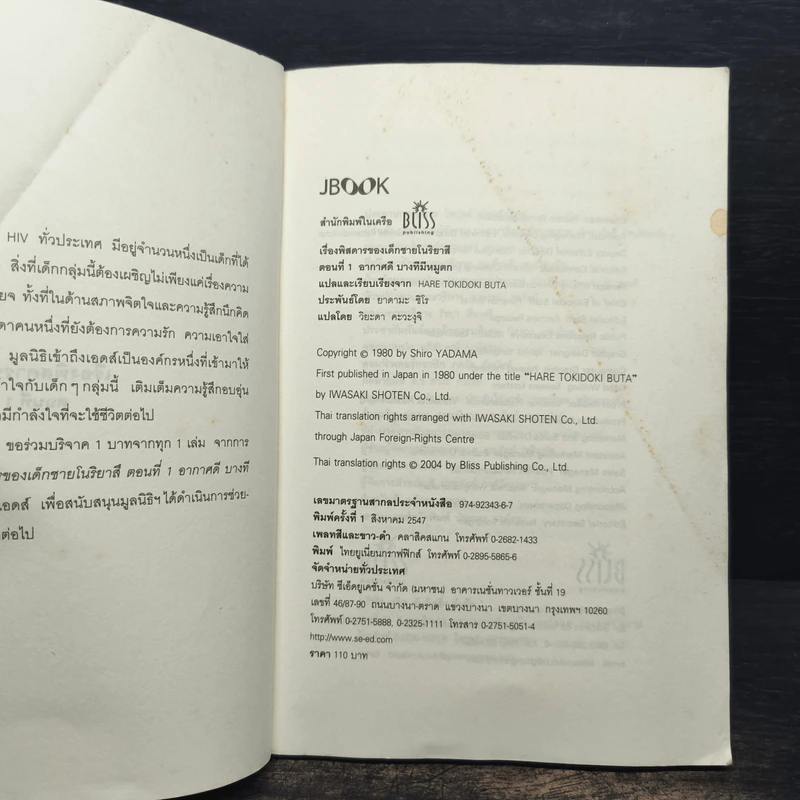 HIV ทั่วประเทศ มีอยู่จำนวนหนึ่งเป็นเด็กที่ได้
สิ่งที่เด็กกลุ่มนี้ต้องเผชิญไม่เพียงแค่เรื่องความ
ทั้งที่ในด้านสภาพจิตใจและความรู้สึกนึกคิด
คนหนึ่งที่ยังต้องการความรัก ความเอาใจใส่
มูลนิธิเข้าถึงเอดส์เป็นองค์กรหนึ่งที่เข้ามาให้
กับเด็ก ๆ กลุ่มนี้ เติมเต็มความรู้สึกอบอุ่น
มีกำลังใจที่จะใช้ชีวิตต่อไป
ขอร่วมบริจาค 1 บาทจากทุก 1 เล่ม จากการ
ของเด็กชายโนริยาสึ ตอนที่ 1 อากาศดี บางที
เอดส์ เพื่อสนับสนุนมูลนิธิฯ ได้ดำเนินการช่วย-
ต่อไป
JBOOK
สำนักพิมพ์ในเครือ BLISS publishing
เรื่องพิสดารของเด็กชายโนริยาสึ
ตอนที่ 1 อากาศดี บางทีมีหมูตก
แปลและเรียบเรียงจาก HARE TOKIDOKI BUTA
ประพันธ์โดย ยาดามะ ชิโร
แปลโดย วิยะดา คะวะงุจิ
Copyright © 1980 by Shiro YADAMA
First published in Japan in 1980 under the title "HARE TOKIDOKI BUTA"
by IWASAKI SHOTEN Co., Ltd.
Thai translation rights arranged with IWASAKI SHOTEN Co., Ltd.
through Japan Foreign-Rights Centre
Thai translation rights © 2004 by Bliss Publishing Co., Ltd.
เลขมาตรฐานสากลประจำหนังสือ 974-92343-6-7
พิมพ์ครั้งที่ 1 สิงหาคม 2547
เพลทสีและขาว-ดำ คลาสิคสแกน โทรศัพท์ 0-2682-1433
พิมพ์ ไทยยูเนี่ยนกราฟฟิกส์ โทรศัพท์ 0-2895-5865-6
จัดจำหน่ายทั่วประเทศ
บริษัท ซีเอ็ดยูเคชั่น จำกัด (มหาชน) อาคารเนชั่นทาวเวอร์ ชั้นที่ 19
เลขที่ 46/87-90 ถนนบางนา-ตราด แขวงบางนา เขตบางนา กรุงเทพฯ 10260
โทรศัพท์ 0-2751-5888, 0-2325-1111 โทรสาร 0-2751-5051-4
http://www.se-ed.com
ราคา 110 บาท